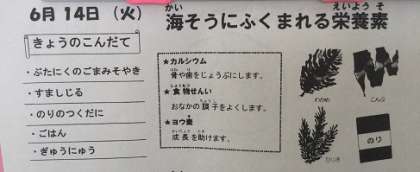 6月14日（火）
海そうにふくまれる栄養素
かい
えいようそ
きょうのこんだて
・ぶたにくのごまみそやき
・すましじる
・のりのつくだに
・ごはん
・ぎゅうにゅう
★カルシウム
骨や歯をじょうぶにします。
★食物せんい
おなかの調子をよくします。
★ヨウ素
成長を助けます。
わかめ
こんぶ
ひじき
のり